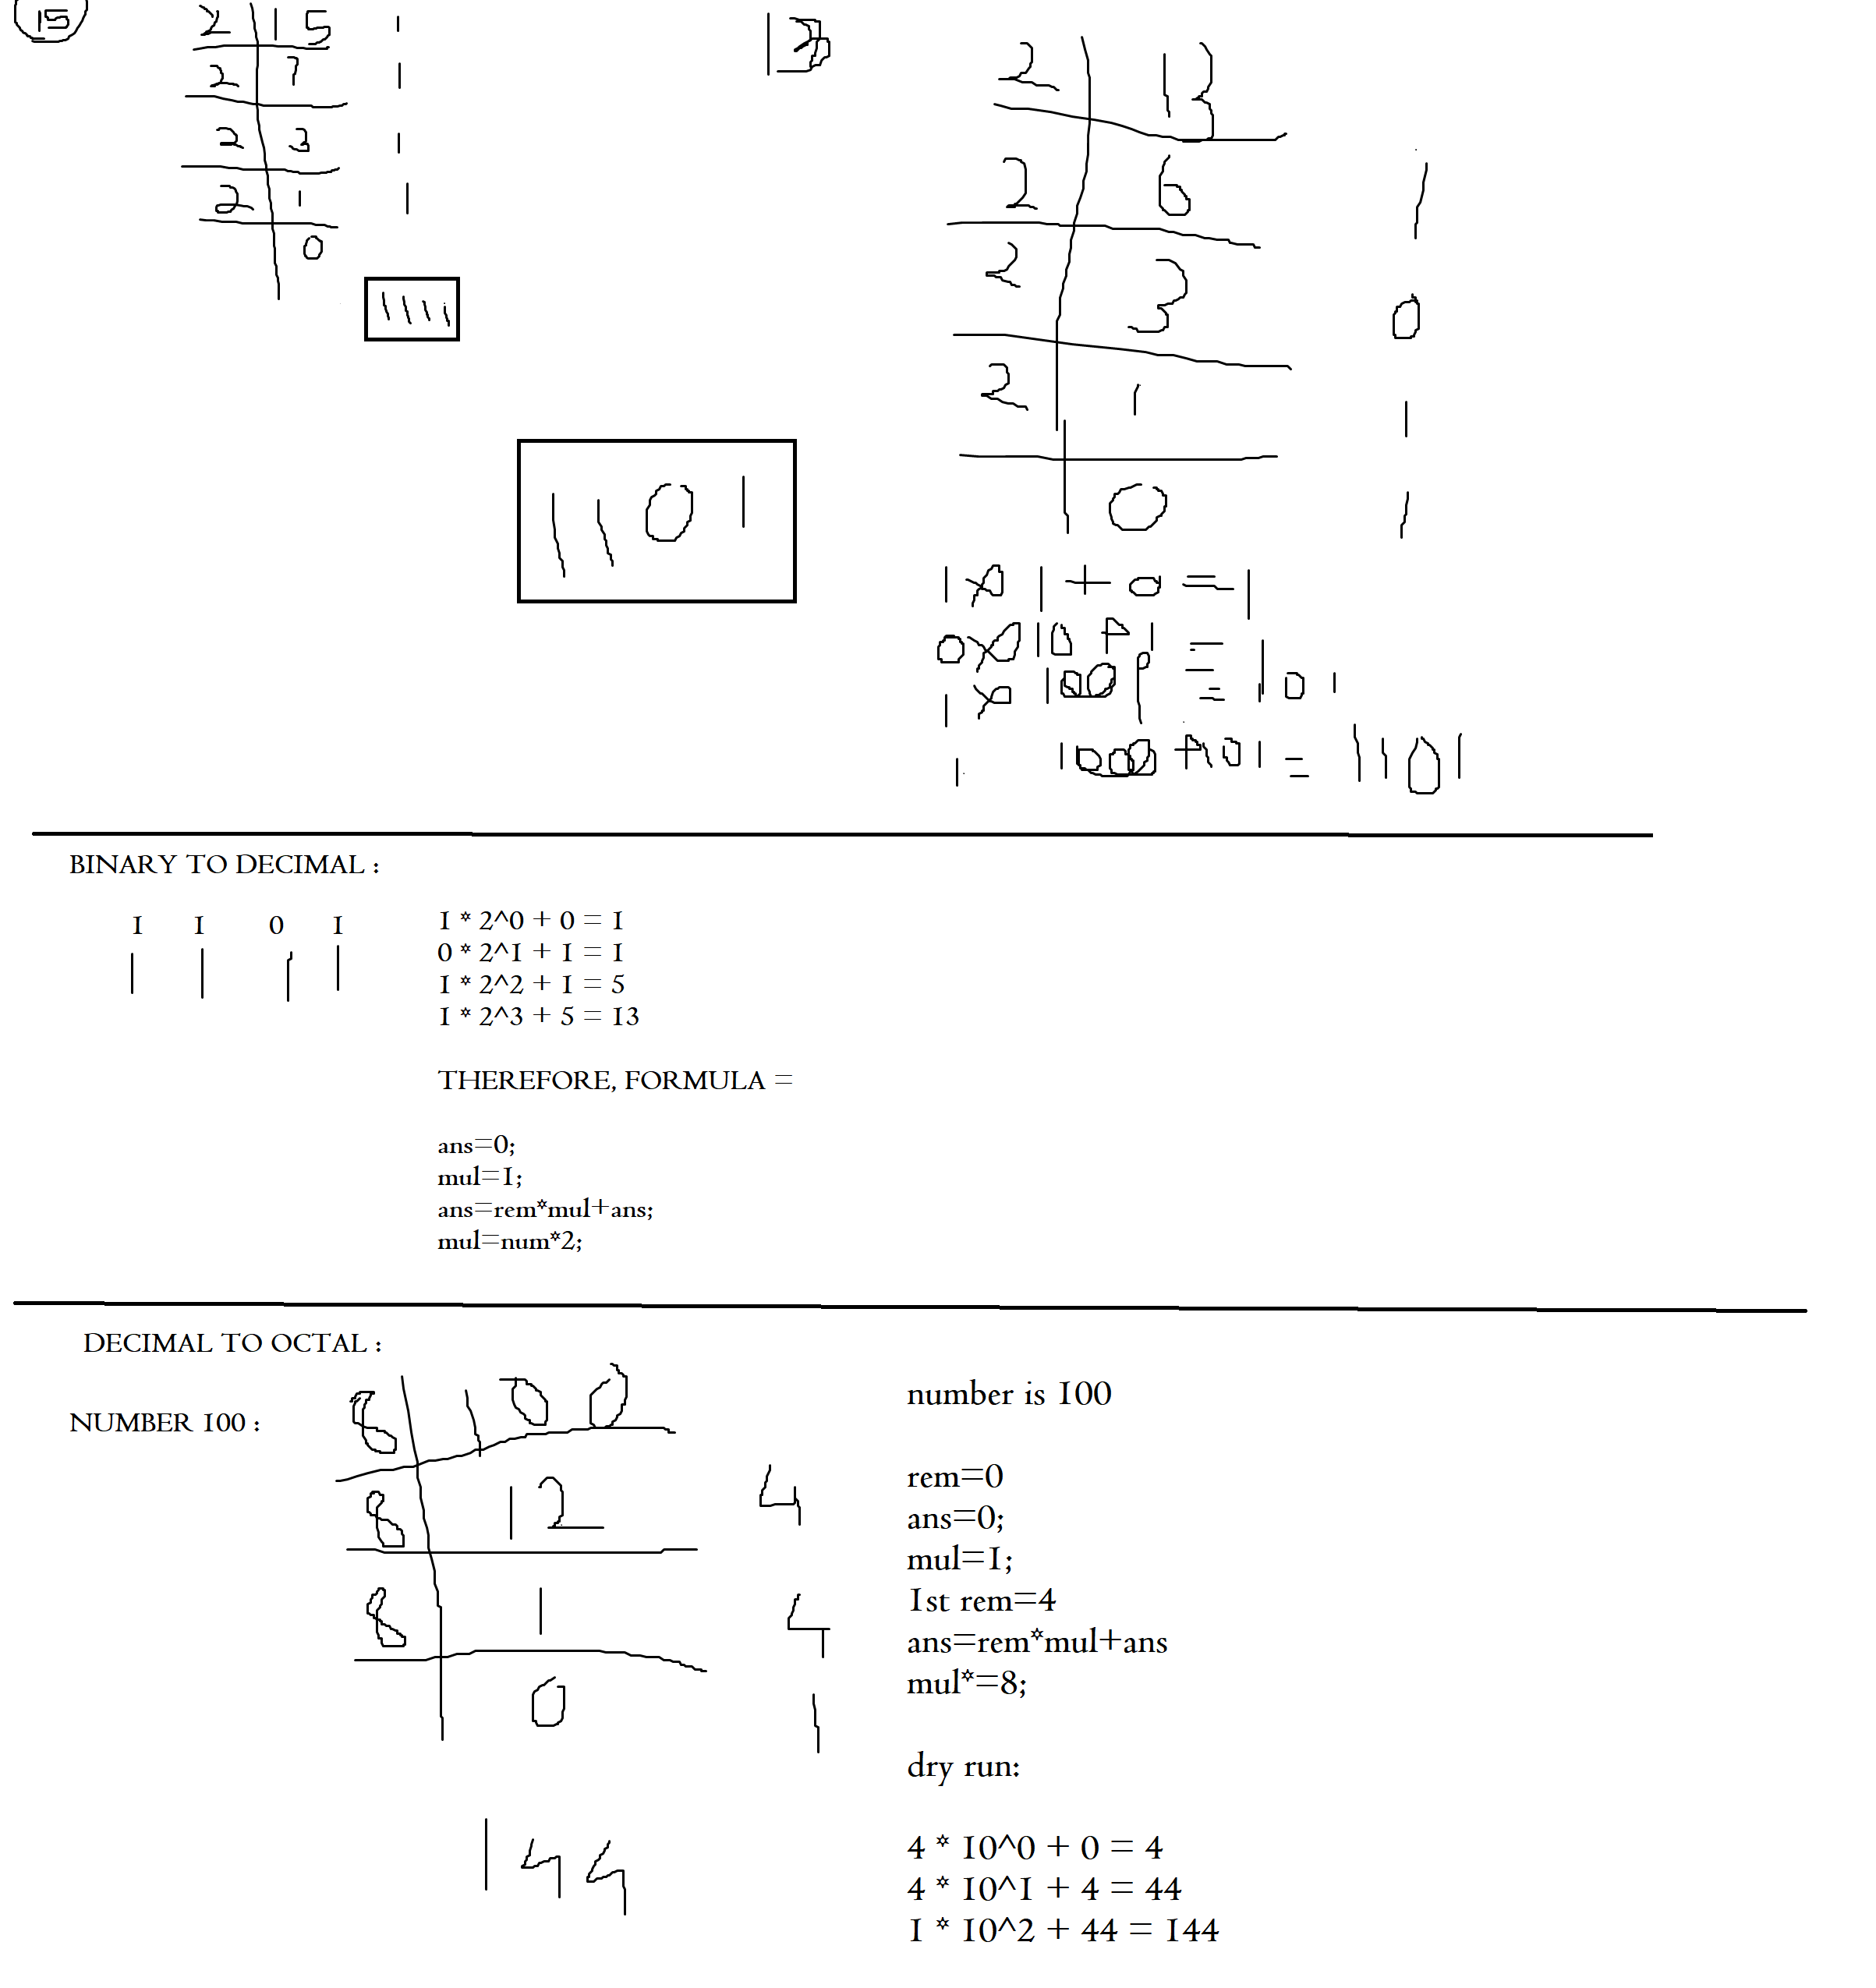 15
2 15 1
2 7 1
2 3 1
2 1 1
0
1111
13
2 13
2 6 1
2 3 0
2 1 1
0 1
1101
1 × 1 + 0 = 1
0 × 10 + 1 = 1
1 × 100 = 101
1 1000 + 101 = 1101
BINARY TO DECIMAL :
1 1 0 1
1 * 2^0 + 0 = 1
0 * 2^1 + 1 = 1
1 * 2^2 + 1 = 5
1 * 2^3 + 5 = 13
THEREFORE, FORMULA =
ans=0;
mul=1;
ans=rem*mul+ans;
mul=num*2;
DECIMAL TO OCTAL :
NUMBER 100 :
8 100
8 12 4
8 1 4
0 1
144
number is 100
rem=0
ans=0;
mul=1;
1st rem=4
ans=rem*mul+ans
mul*=8;
dry run:
4 * 10^0 + 0 = 4
4 * 10^1 + 4 = 44
1 * 10^2 + 44 = 144